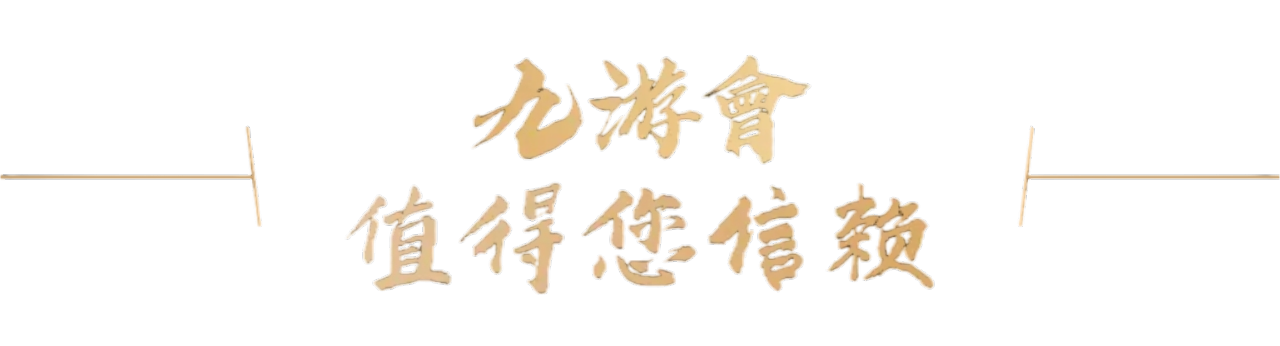 九游會
值得您信赖